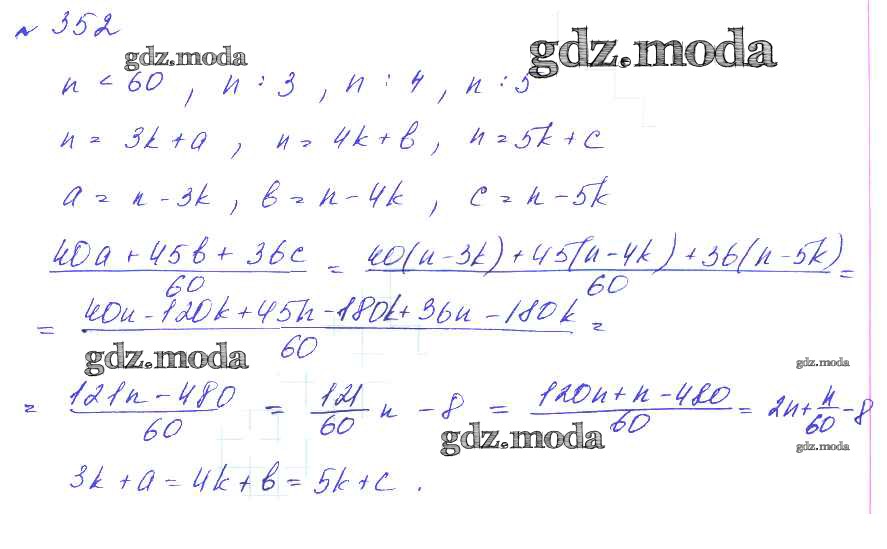 № 352
gdz.moda gdz.moda
n < 60 , n : 3 , n : 4 , n : 5
n = 3k + a , n = 4k + b , n = 5k + c
a = n - 3k , b = n - 4k , c = n - 5k
(40a + 45b + 36c)/60 = (40(n - 3k) + 45(n - 4k) + 36(n - 5k))/60 =
= (40n - 120k + 45n - 180k + 36n - 180k)/60 =
gdz.moda gdz.moda
= (121n - 480)/60 = 121/60 n - 8 = (120n + n - 480)/60 = 2n + n/60 - 8
gdz.moda gdz.moda
3k + a = 4k + b = 5k + c .